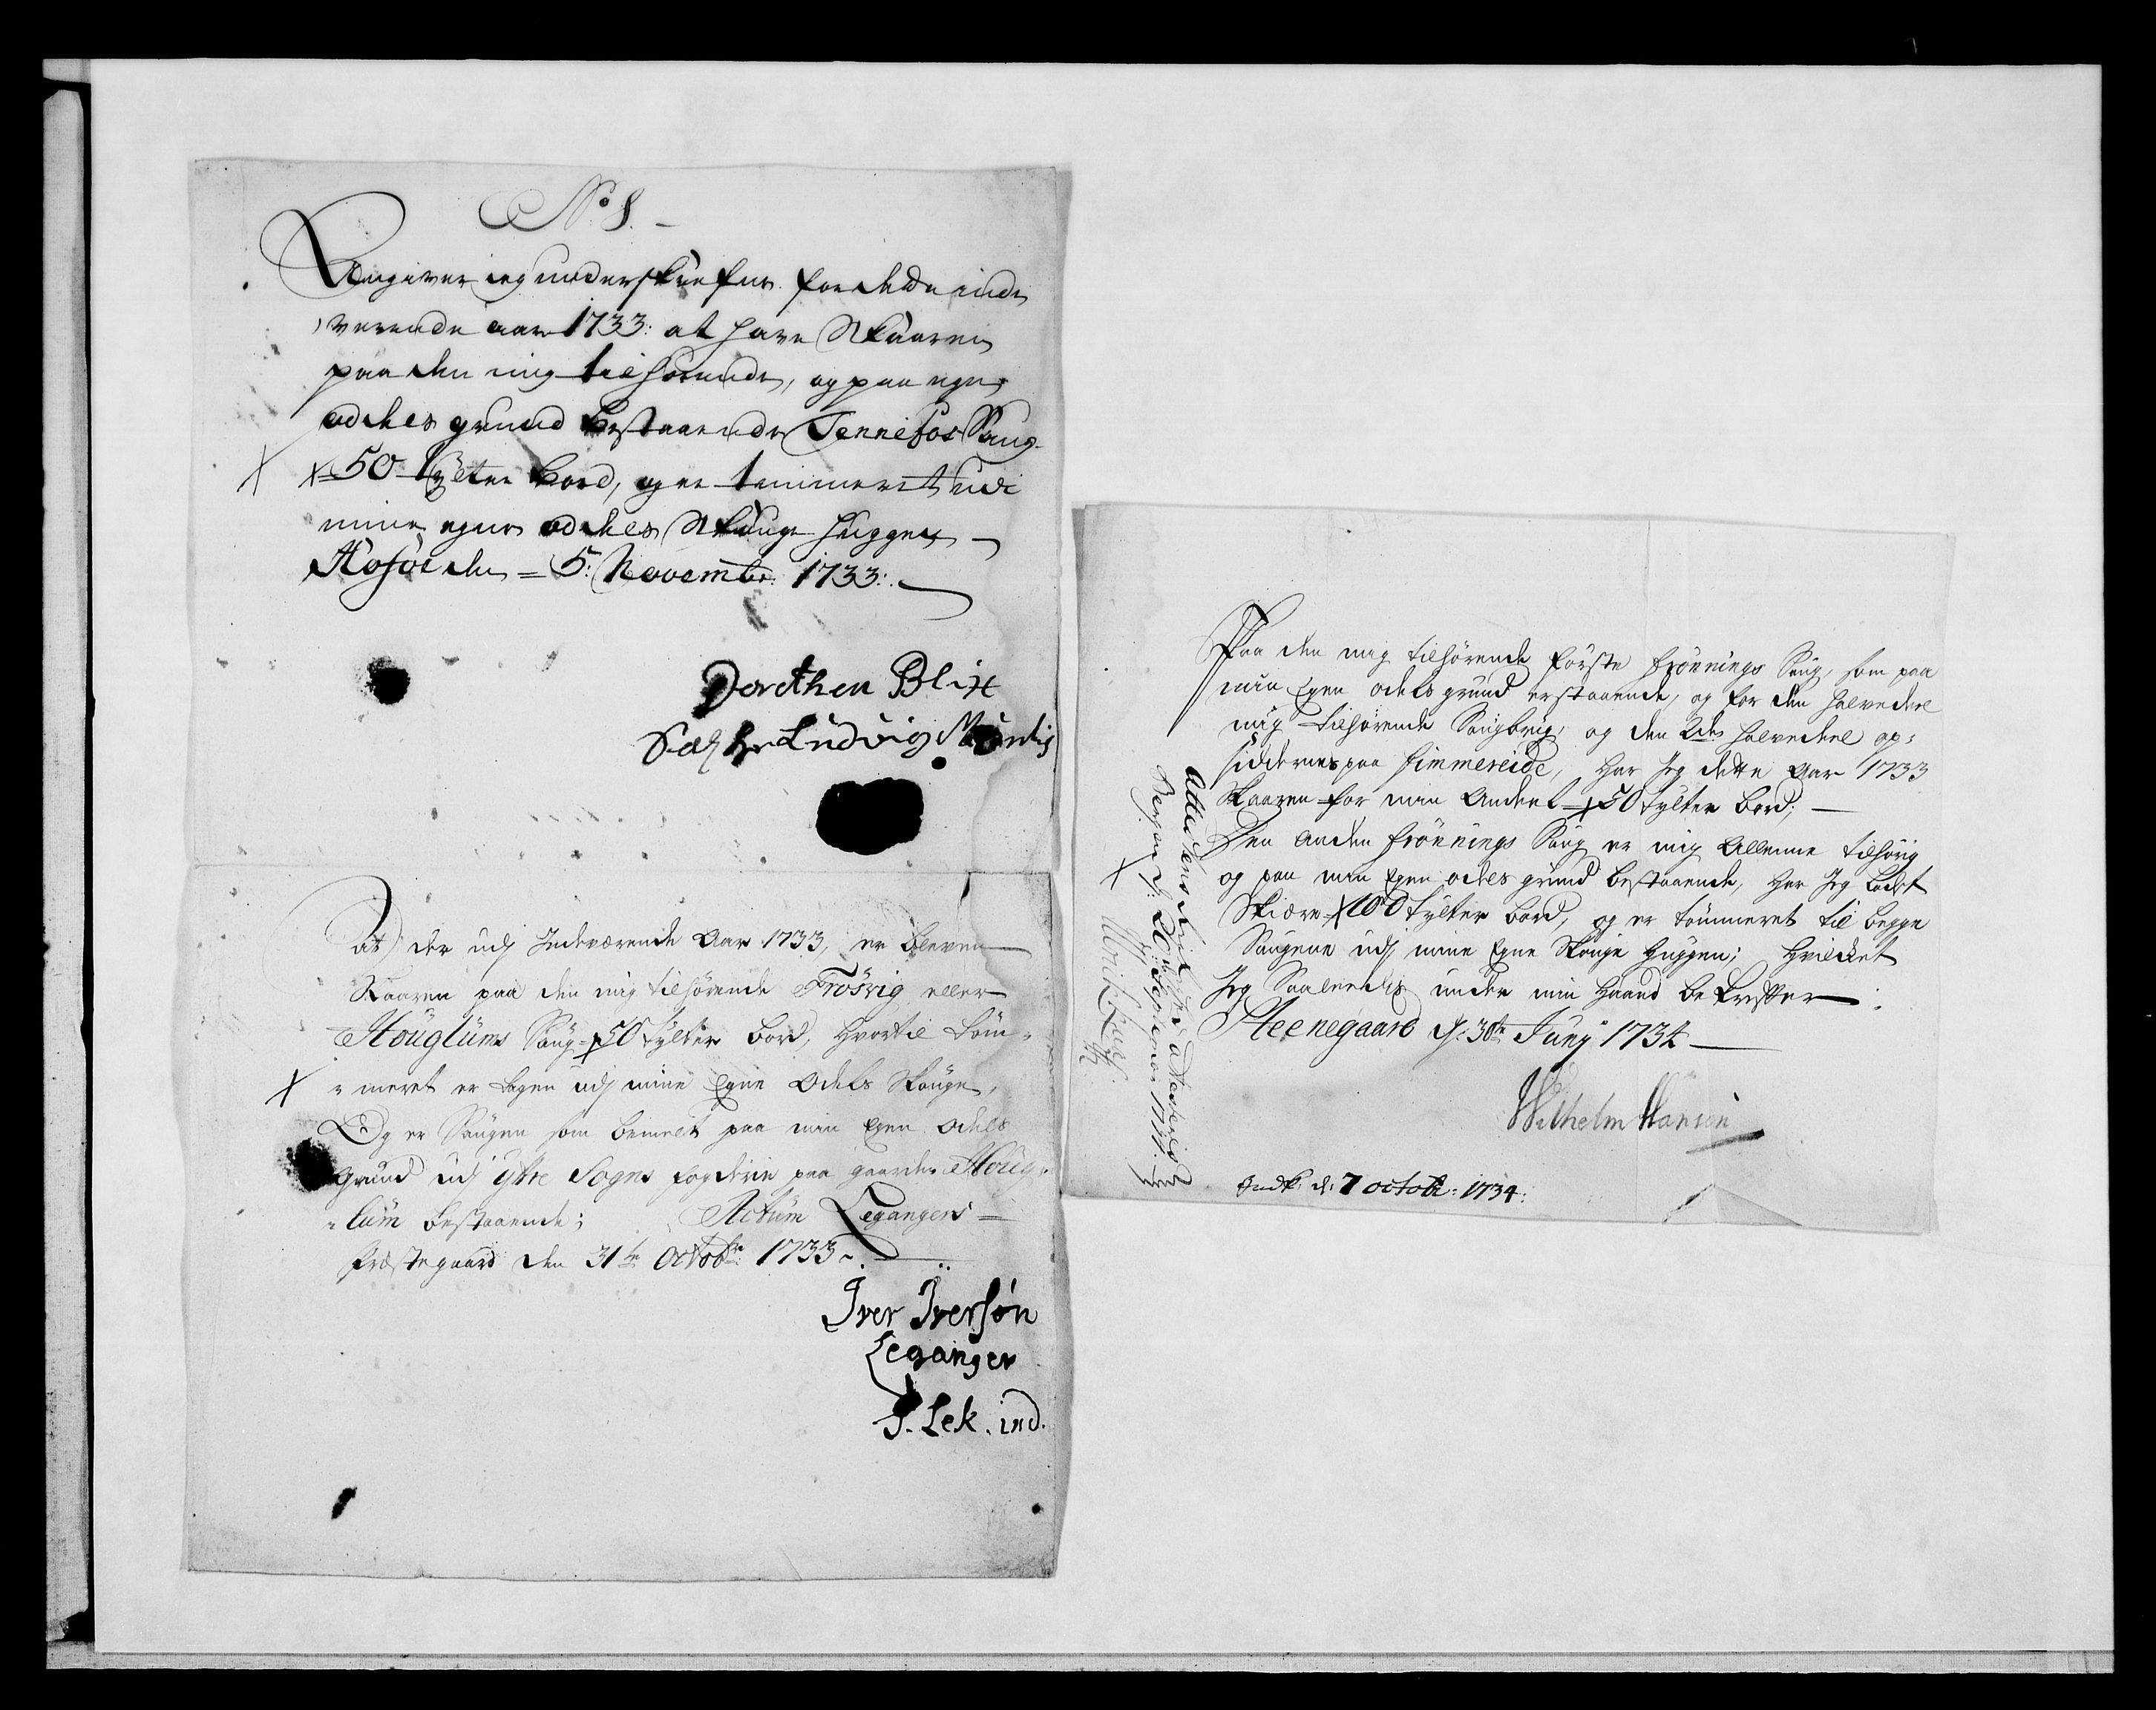 No 8.
Angiver ieg underskrefne for dette inde
værende aar 1733: at have Skaaren
paa den mig tilhørende, og paa egen
oddels grund bestaaende Tennefos Saug
50 tylter bord, og er tømmeret udi
mine egne oddels Skouge huggen
den 5: Novembr: 1733:
Dorethea Blix
Sal: Hr Ludvig
At der udj Indeværende Aar 1733, er bleven
Skaaren paa den mig tilhørende Frøsvig eller
Houglums Saug 50 tylter bord, hvortil tøm-
meret er tagen udj mine Egne Odels Skouge,
Og er Saugen som bemelt paa min Egen Odels
Grund udj ytre Sogns fogderie paa gaarden Houg-
lum bestaaende; Actum Legangers
Præstegaard den 31te Octobr: 1733.
Iver Iversøn
Leganger
S. Lek. ind.
Paa den mig tilhørende første Frønnings Saug, som paa
min Egen odels grund erstaaende, og for den halvedeel
mig tilhørende Saugbrug, og den 2den halvedeel op-
siddernes paa Fimmereide, Har Jeg dette Aar 1733
Skaaren for min Andeel 50 tylter bord;
Den anden Frønnings Saug er mig Allenne tilhørig
og paa min Egen odels grund bestaaende, Har Jeg ladet
Skiære 100 tylter bord, og er tømmeret til begge
Saugene udj mine Egne Skouge huggen; Hvilcket
Jeg Saaledes under min Haand bekræffter
Steenegaard d: 30te Juny 1734
Wilhelm Hanson
Indk: d: 7 octobr: 1734:
Bergen d: 20 September 1734.